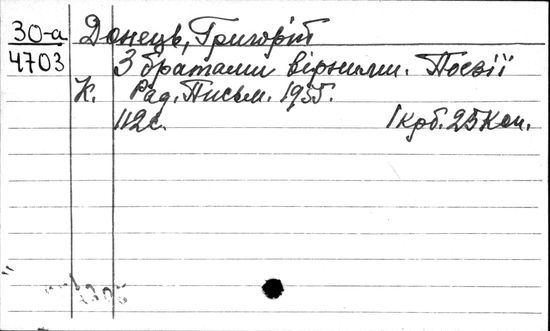 30-а Донець, Григорій
4703 З братами вірними. Поезії
К. Рад. Письм. 1955.
112с. 1 крб. 25 коп.